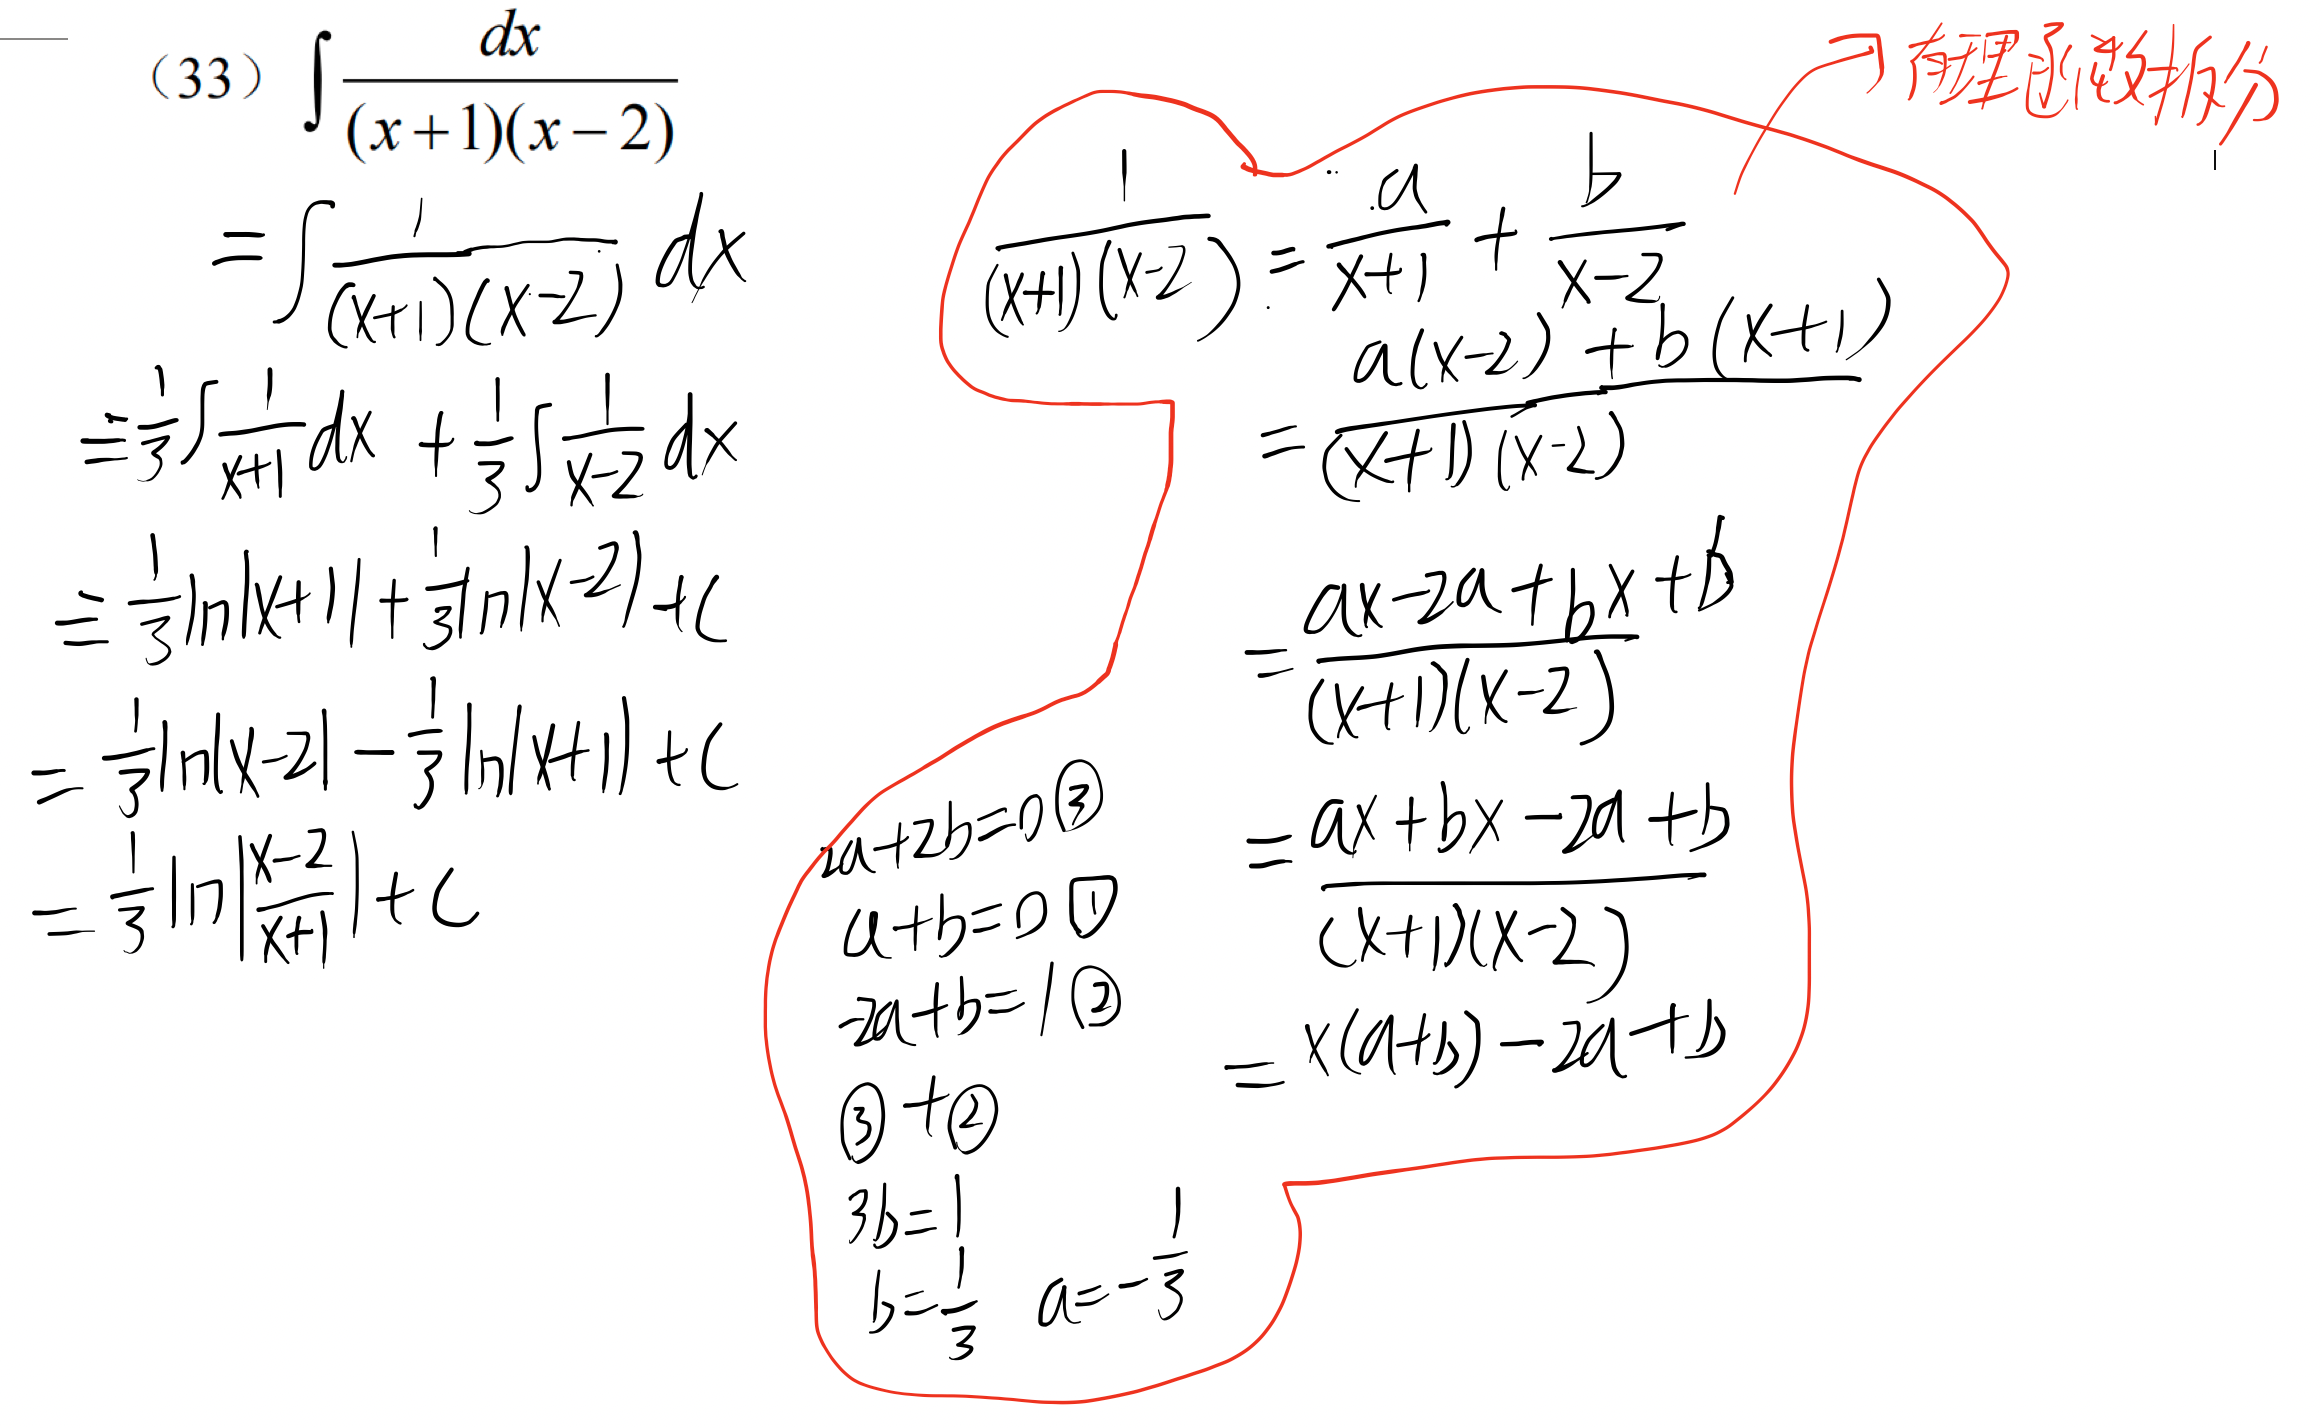 (33) ∫ dx / (x+1)(x−2)
= ∫ 1/((x+1)(x-2)) dx
= -1/3 ∫ 1/(x+1) dx + 1/3 ∫ 1/(x-2) dx
= -1/3 ln|x+1| + 1/3 ln|x-2| + C
= 1/3 ln|x-2| - 1/3 ln|x+1| + C
= 1/3 ln|(x-2)/(x+1)| + C
有理函数拆分
1/((x+1)(x-2)) = a/(x+1) + b/(x-2)
= (a(x-2) + b(x+1))/((x+1)(x-2))
= (ax-2a+bx+b)/((x+1)(x-2))
= (ax+bx-2a+b)/((x+1)(x-2))
= x(a+b)-2a+b
2a+2b=0 ③
a+b=0 ①
-2a+b=1 ②
③+②
3b=1
b=1/3 a=-1/3